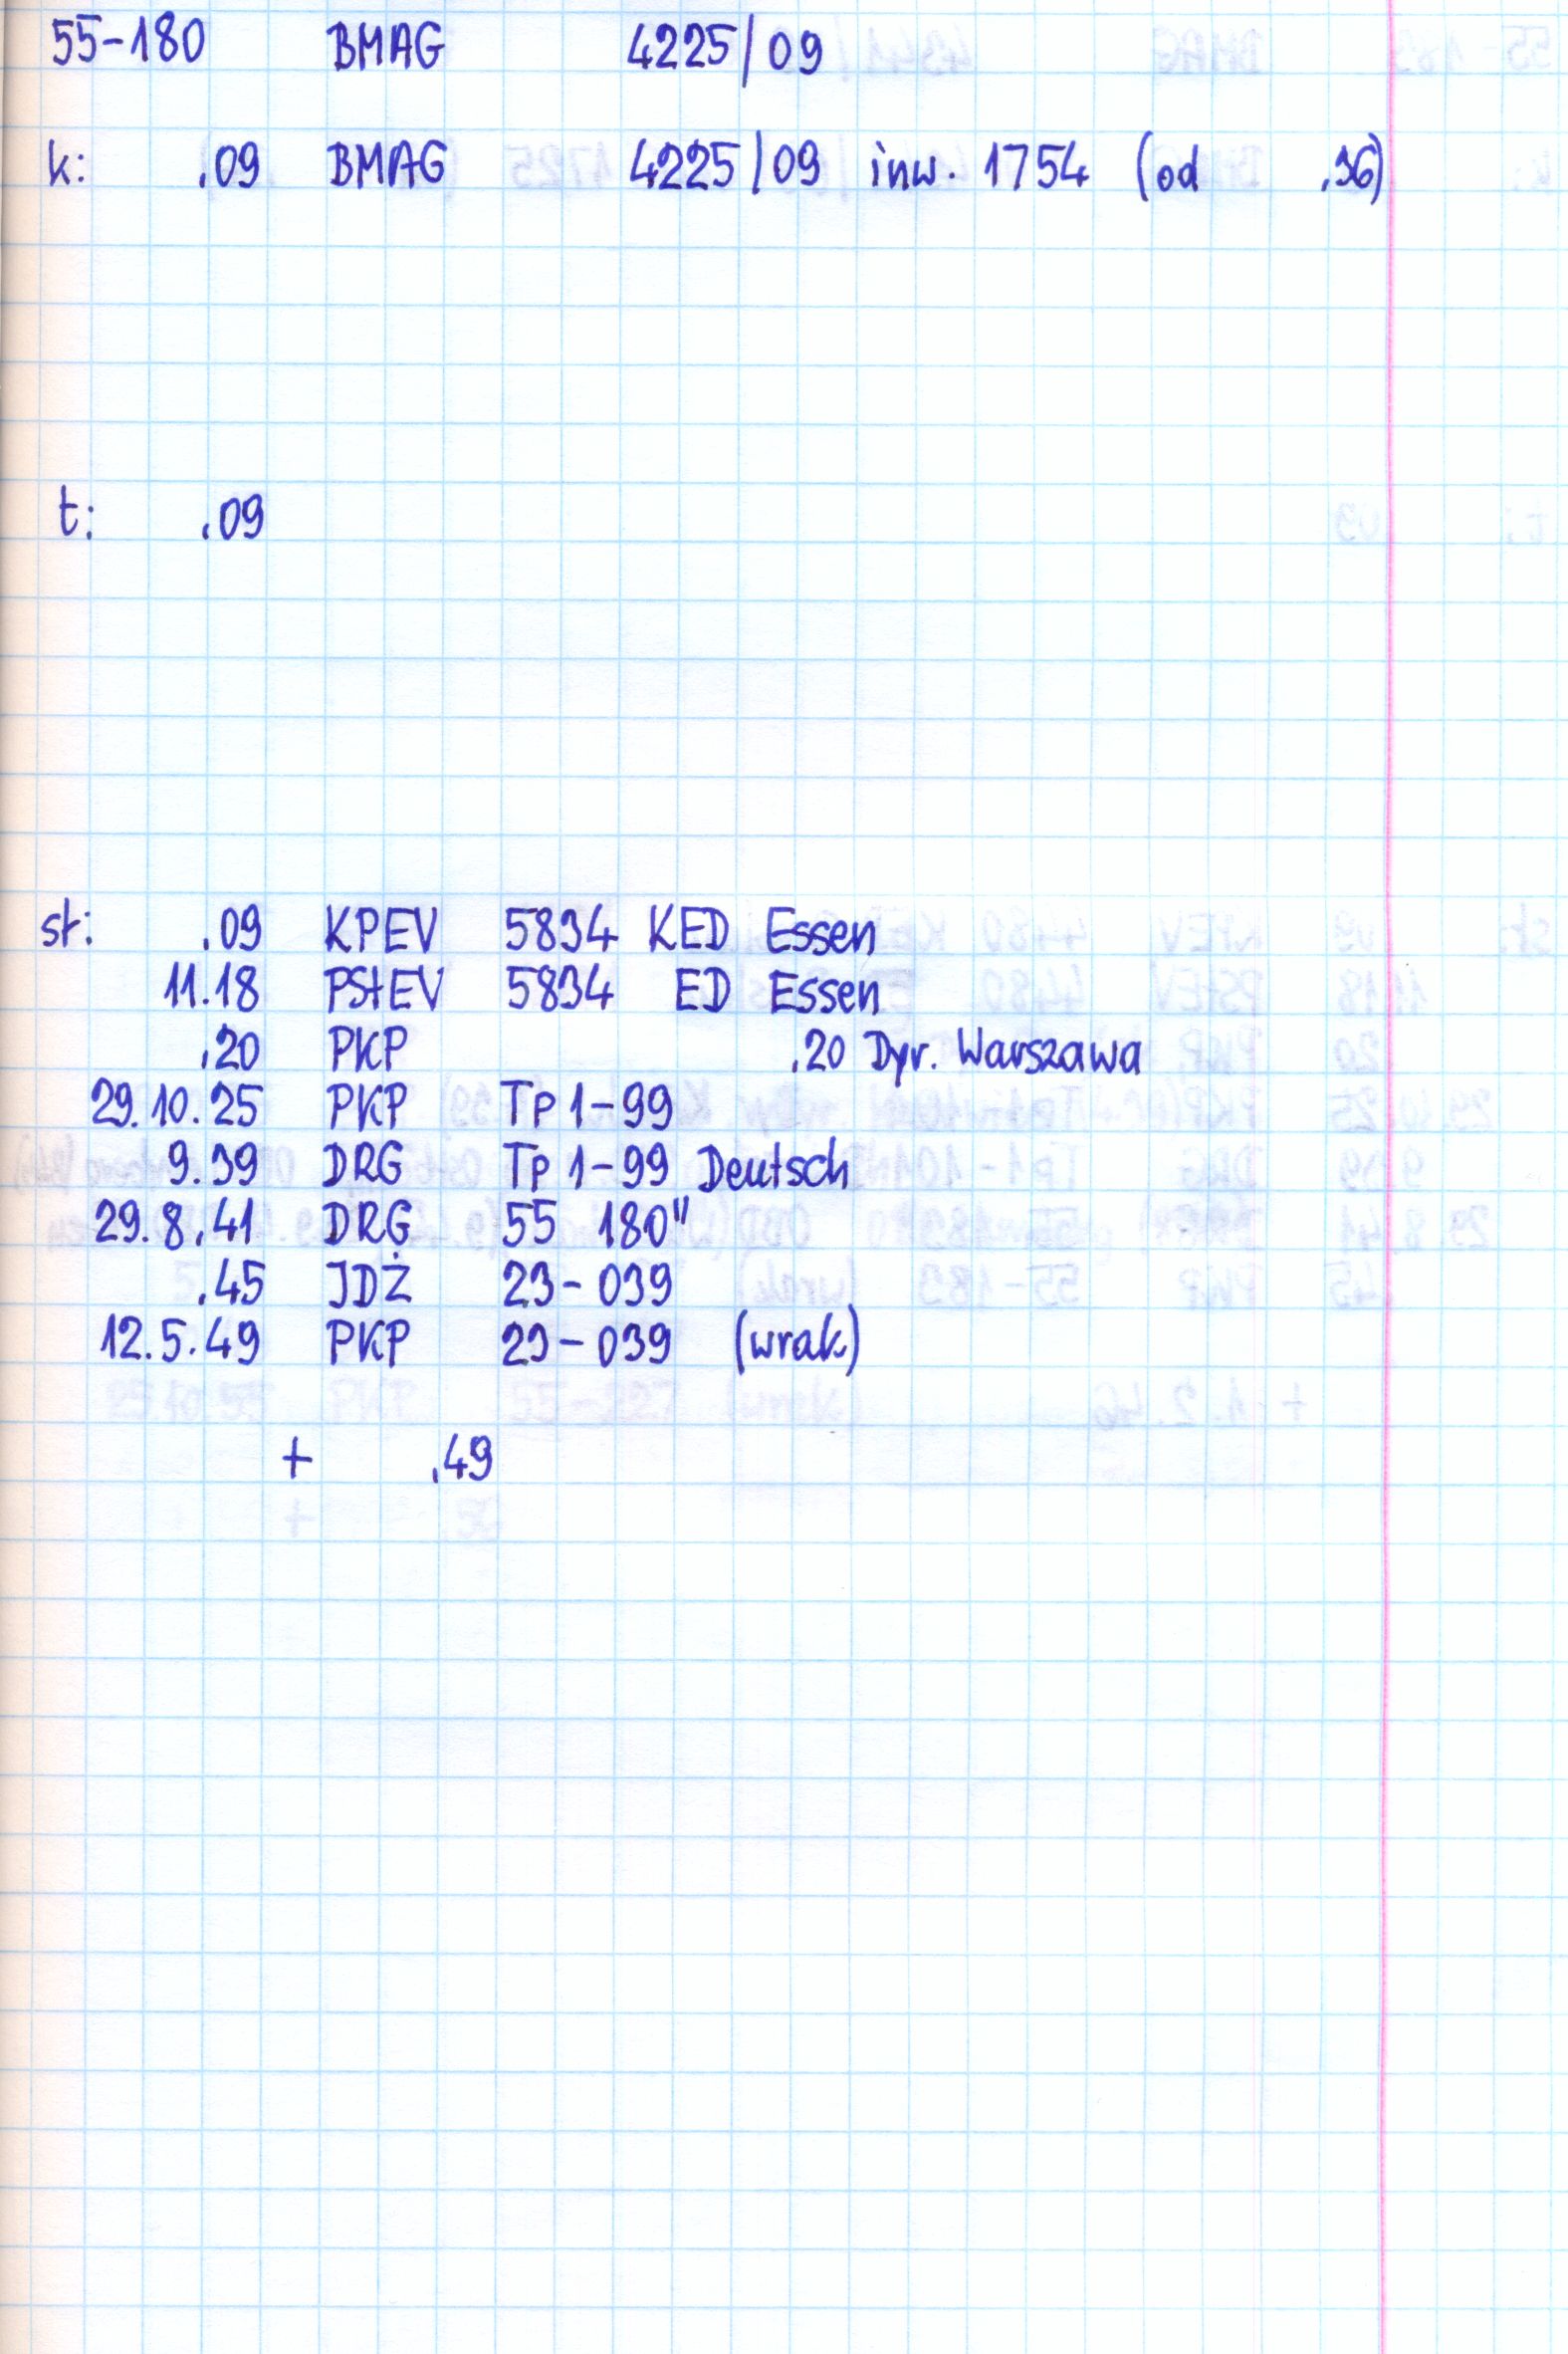 55-180 BMAG 4225/09
k: .09 BMAG 4225/09 inw. 1754 (od .36)
t: .09
st: .09 KPEV 5834 KED Essen
11.18 PStEV 5834 ED Essen
.20 PKP .20 Dyr. Warszawa
29.10.25 PKP Tp 1-99
9.39 DRG Tp 1-99 Deutsch
29.8.41 DRG 55 180"
.45 JDŻ 23-039
12.5.49 PKP 23-039 (wrak)
+ .49